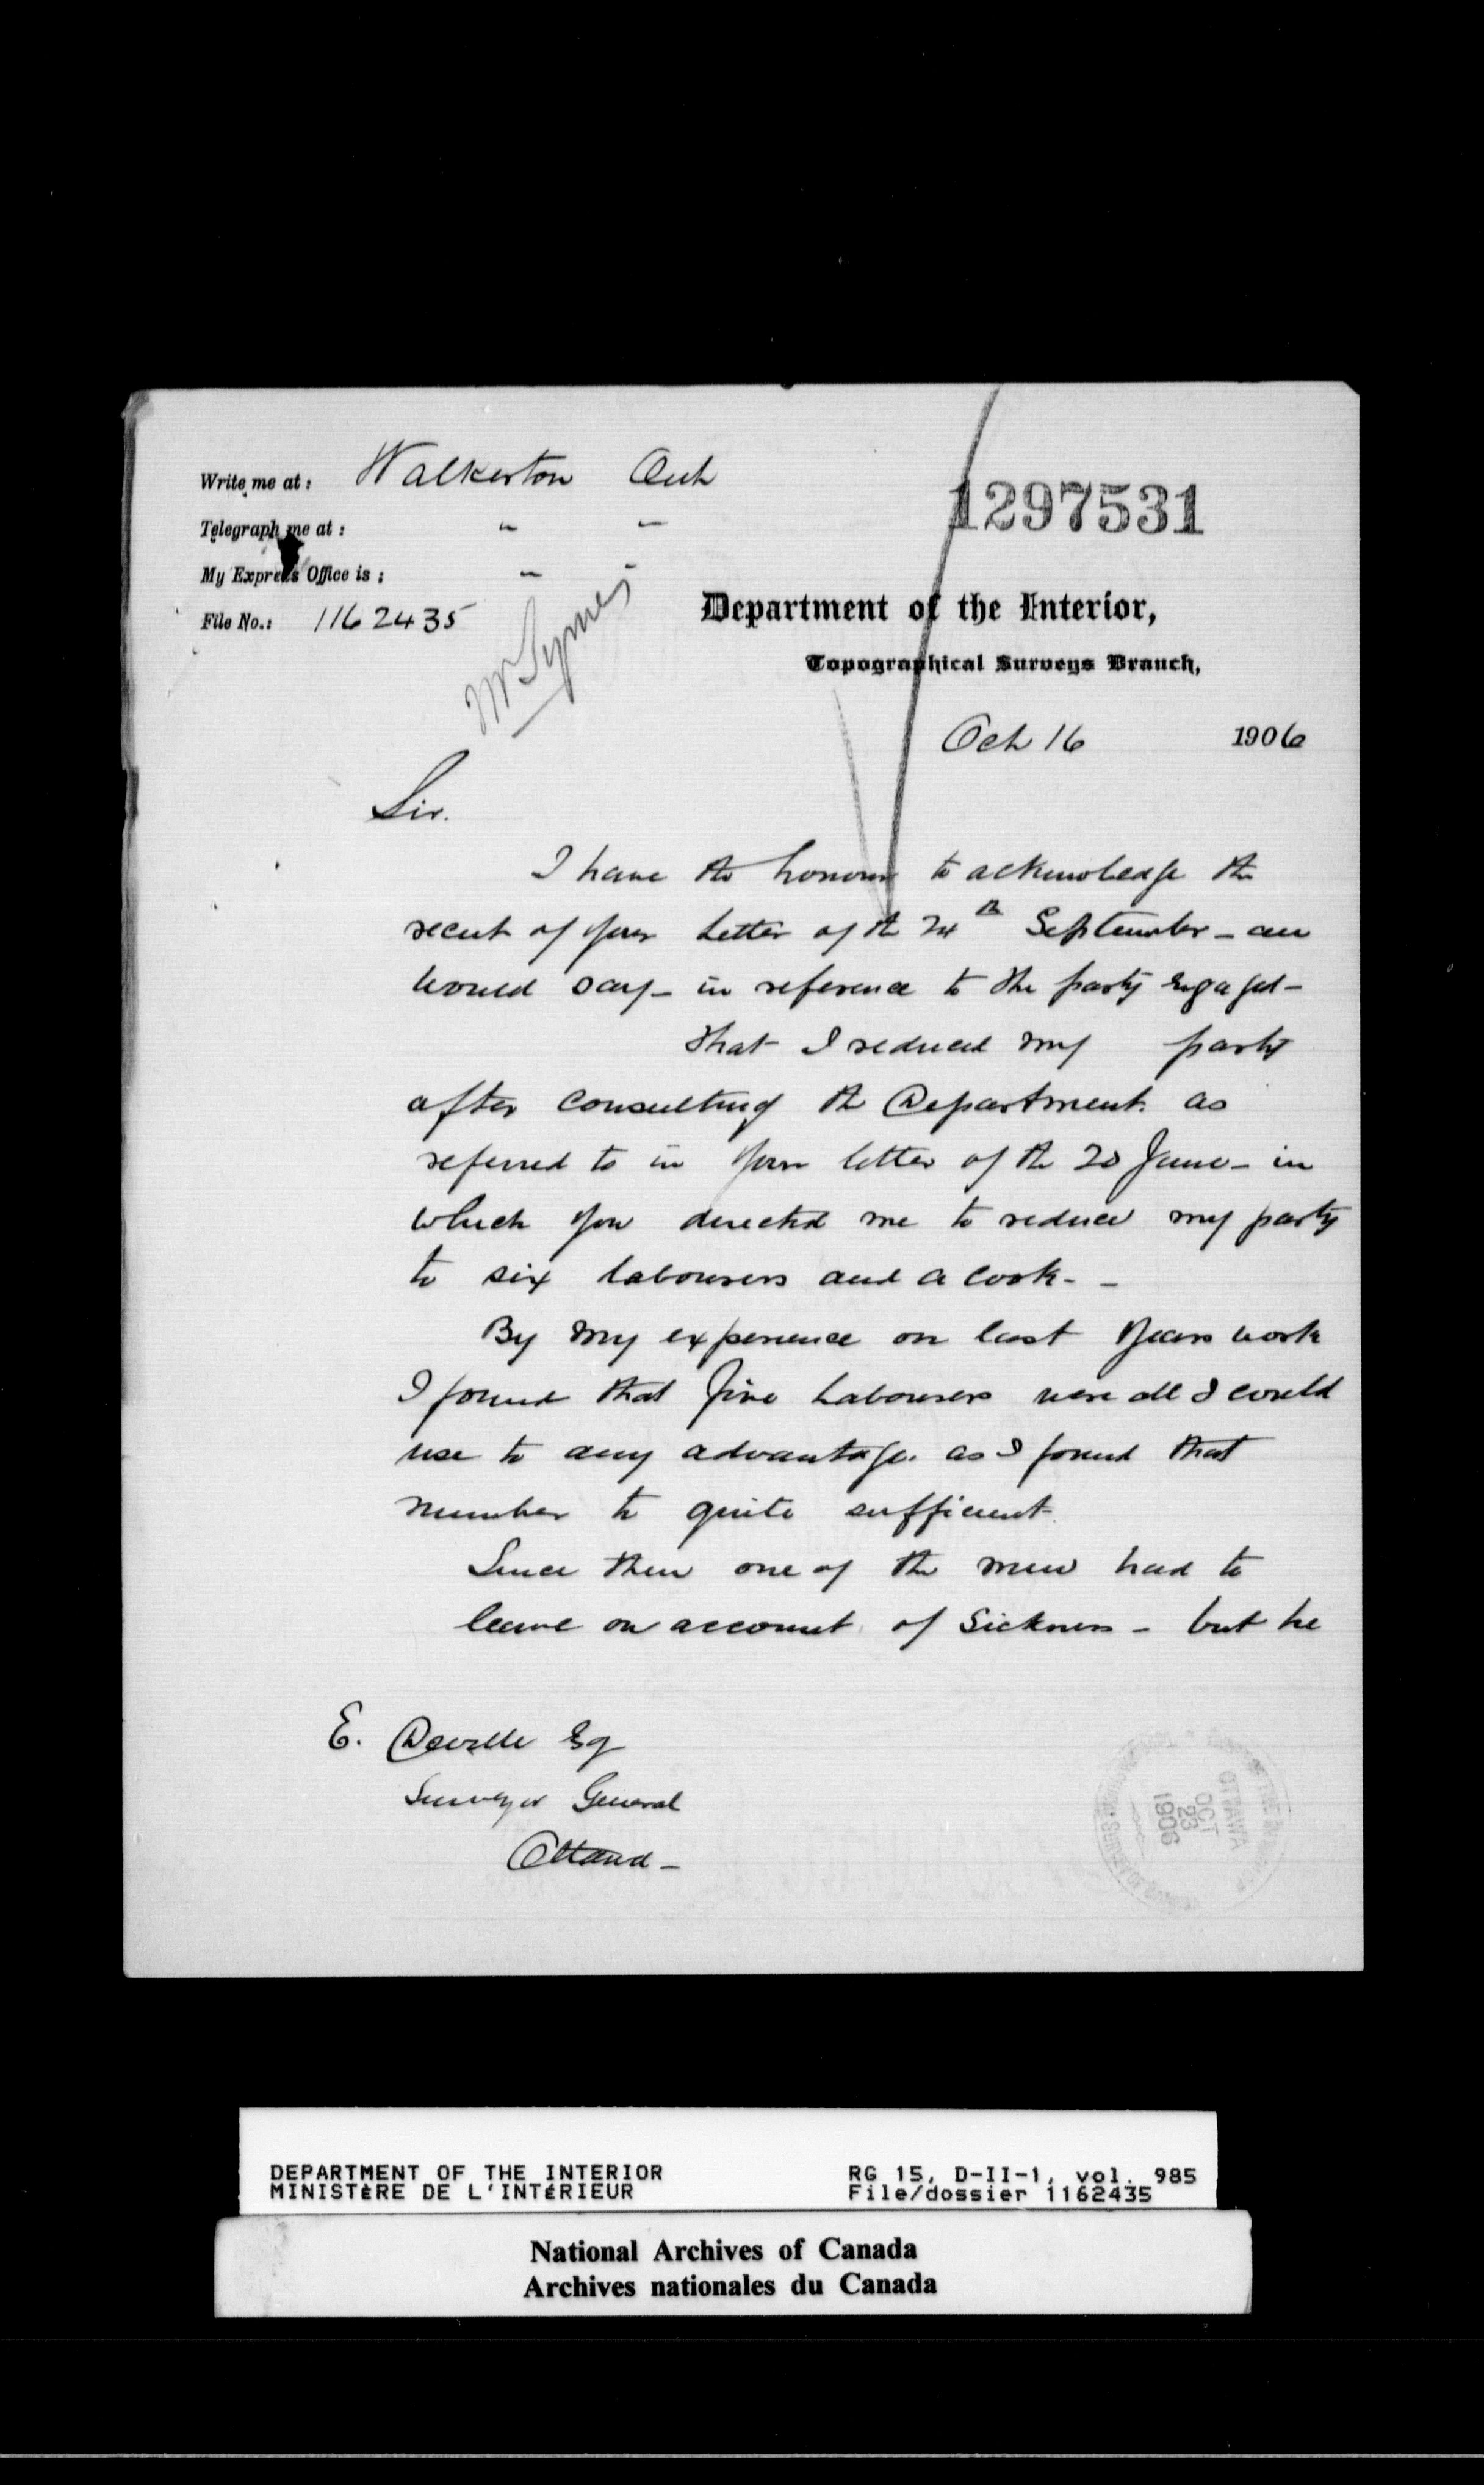 Write me at: Walkerton Ont
Telegraph me at: " "
My Express Office is: " "
File No.: 1162435
1297531
Mr Symes
Department of the Interior,
Topographical Surveys Branch,
Oct 16 1906
Sir.
I have the honour to acknowledge the
receit of your letter of the 24th September - an
would say - in reference to the party engaged -
that I reduced my party
after consulting the Department as
referred to in your letter of the 20 June - in
which you directed me to reduce my party
to six labourers and a cook - -
By my experience on last years work
I found that five labourers were all I could
use to any advantage. as I found that
number to quite sufficient.
Since then one of the men had to
leave on account of sickness - but he
E. Deville Esq
Surveyor General
Ottawa -
OTTAWA
OCT
23
1906
DEPARTMENT OF THE INTERIOR RG 15, D-II-1, vol. 985
MINISTÈRE DE L'INTÉRIEUR File/dossier 1162435
National Archives of Canada
Archives nationales du Canada